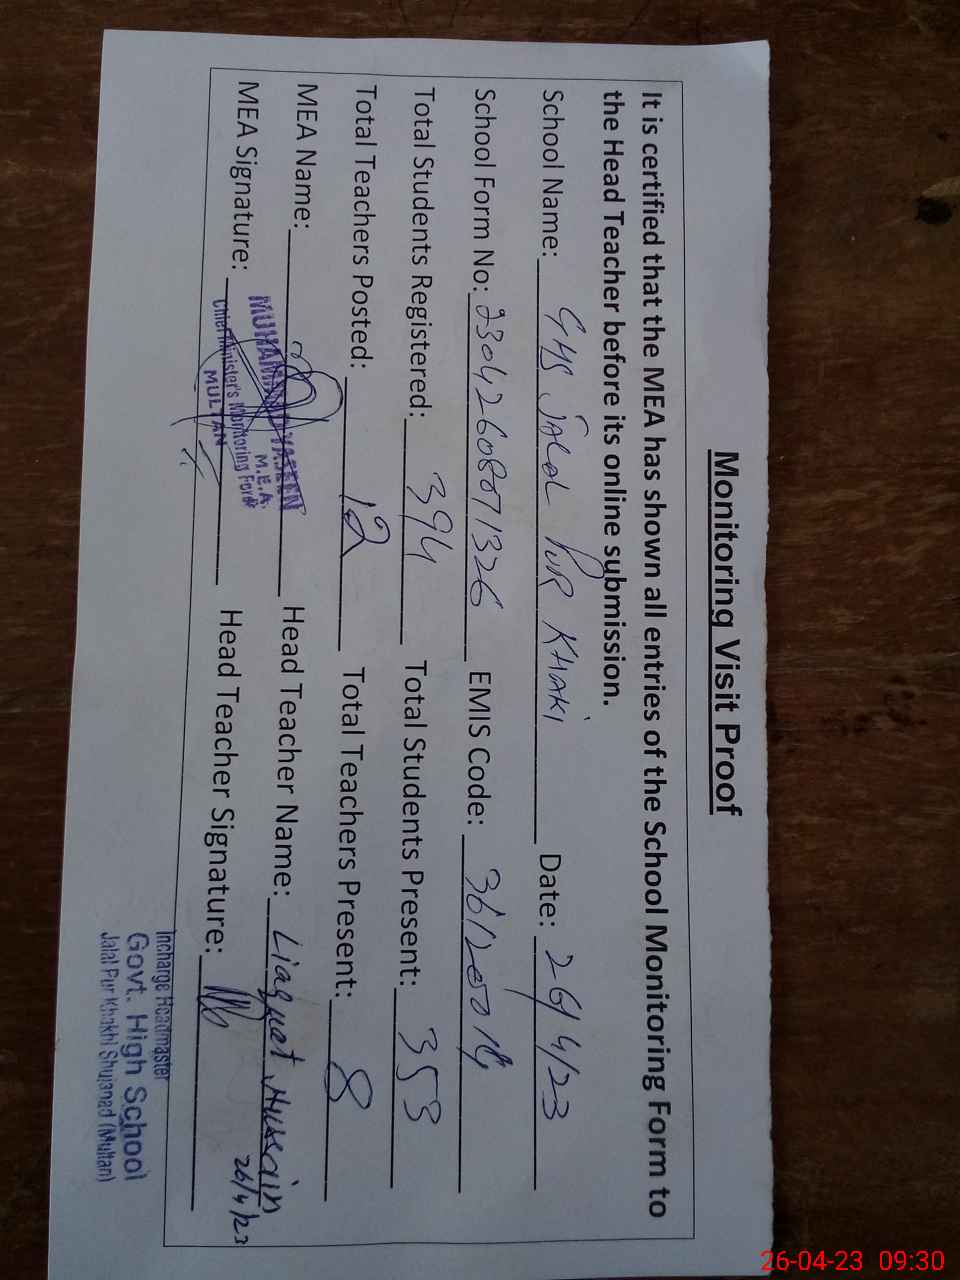 Monitoring Visit Proof
It is certified that the MEA has shown all entries of the School Monitoring Form to
the Head Teacher before its online submission.
School Name: GHS JALAL PUR KHAKI Date: 26/4/23
School Form No: 23042608071326 EMIS Code:
Total Students Registered: 394 Total Students Present: 353
Total Teachers Posted: 12 Total Teachers Present: 8
MEA Name: MUHAMMAD YASEEN Head Teacher Name: Liaquat Hussain
M.E.A.
MEA Signature: Chief Minister's Monitoring Force Head Teacher Signature: 26/4/23
MULTAN
Incharge Headmaster
Govt. High School
Jalal Pur Khakhi Shujabad (Multan)
26-04-23 09:30